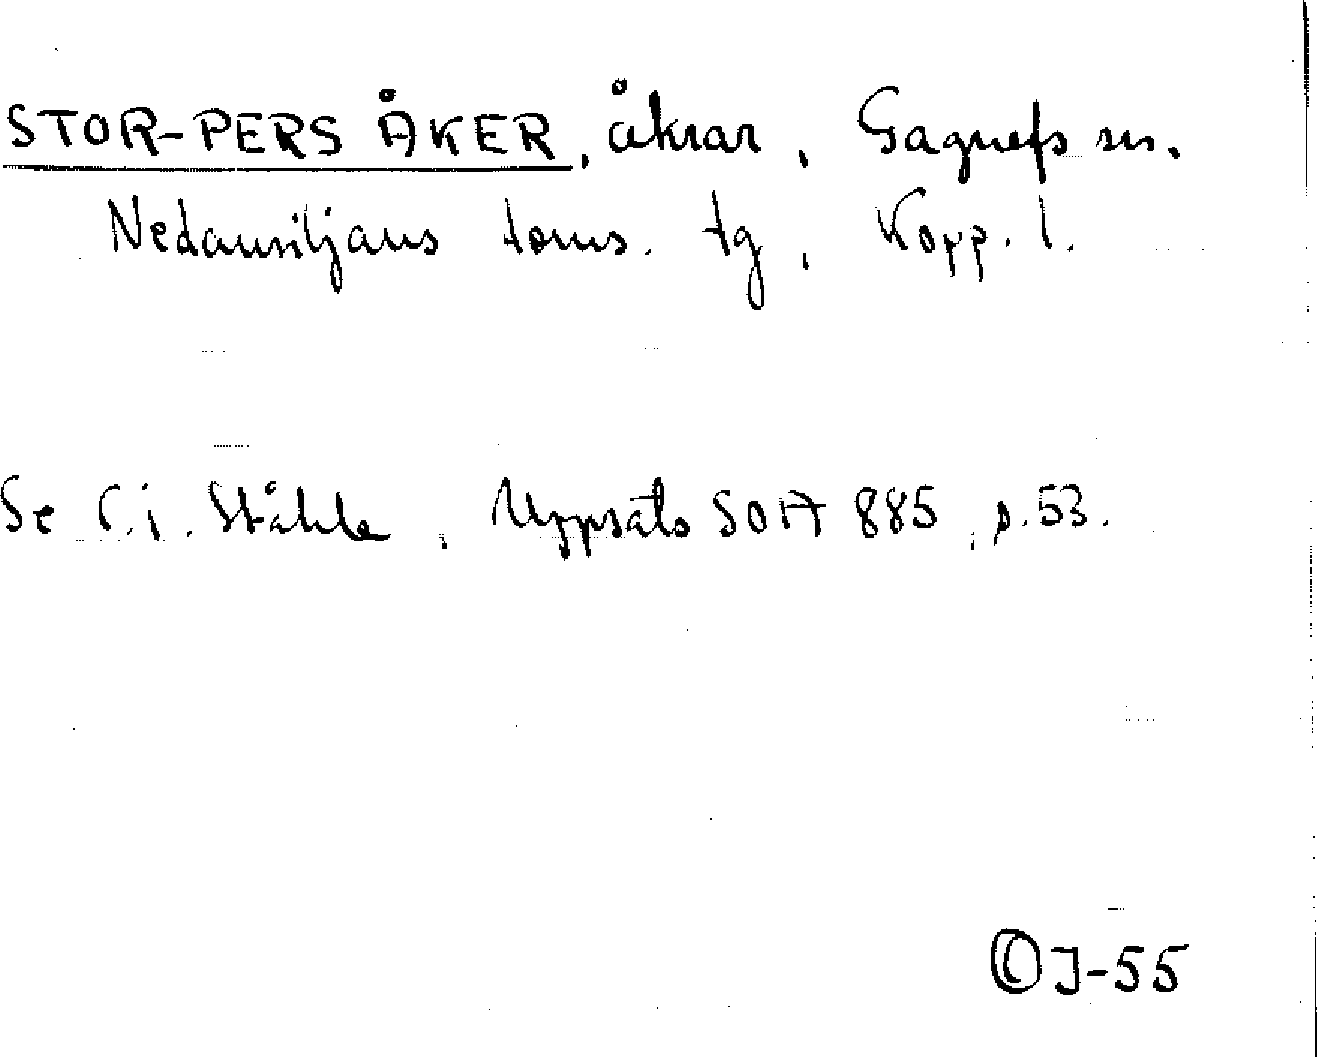 STOR-PERS ÅKER, åkrar, Gagnefs sn.
Nedansiljans doms. tg, Kopp. l.
Se C.i. Ståhle, Uppsats SOA 885, s. 53.
© J-55